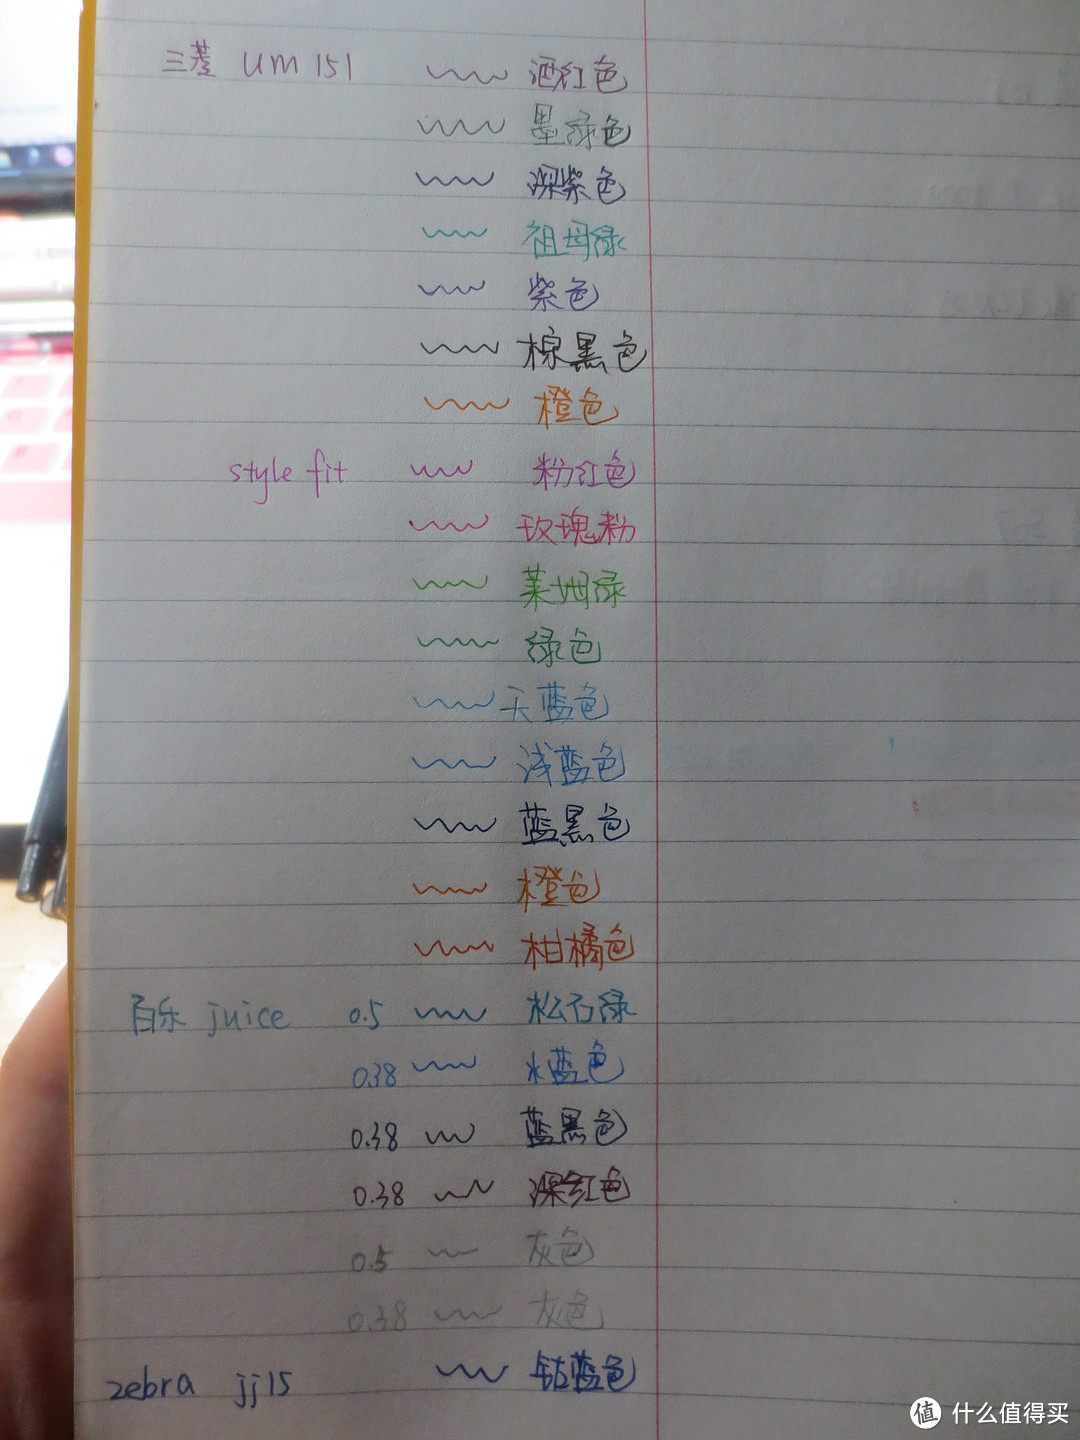 三菱 um 151 酒红色
墨绿色
深紫色
祖母绿
紫色
棕黑色
橙色
style fit 粉红色
玫瑰粉
莱姆绿
绿色
天蓝色
浅蓝色
蓝黑色
橙色
柑橘色
百乐 juice 0.5 松石绿
0.38 水蓝色
0.38 蓝黑色
0.38 深红色
0.5 灰色
0.38 灰色
zebra jj15 钴蓝色
值 什么值得买